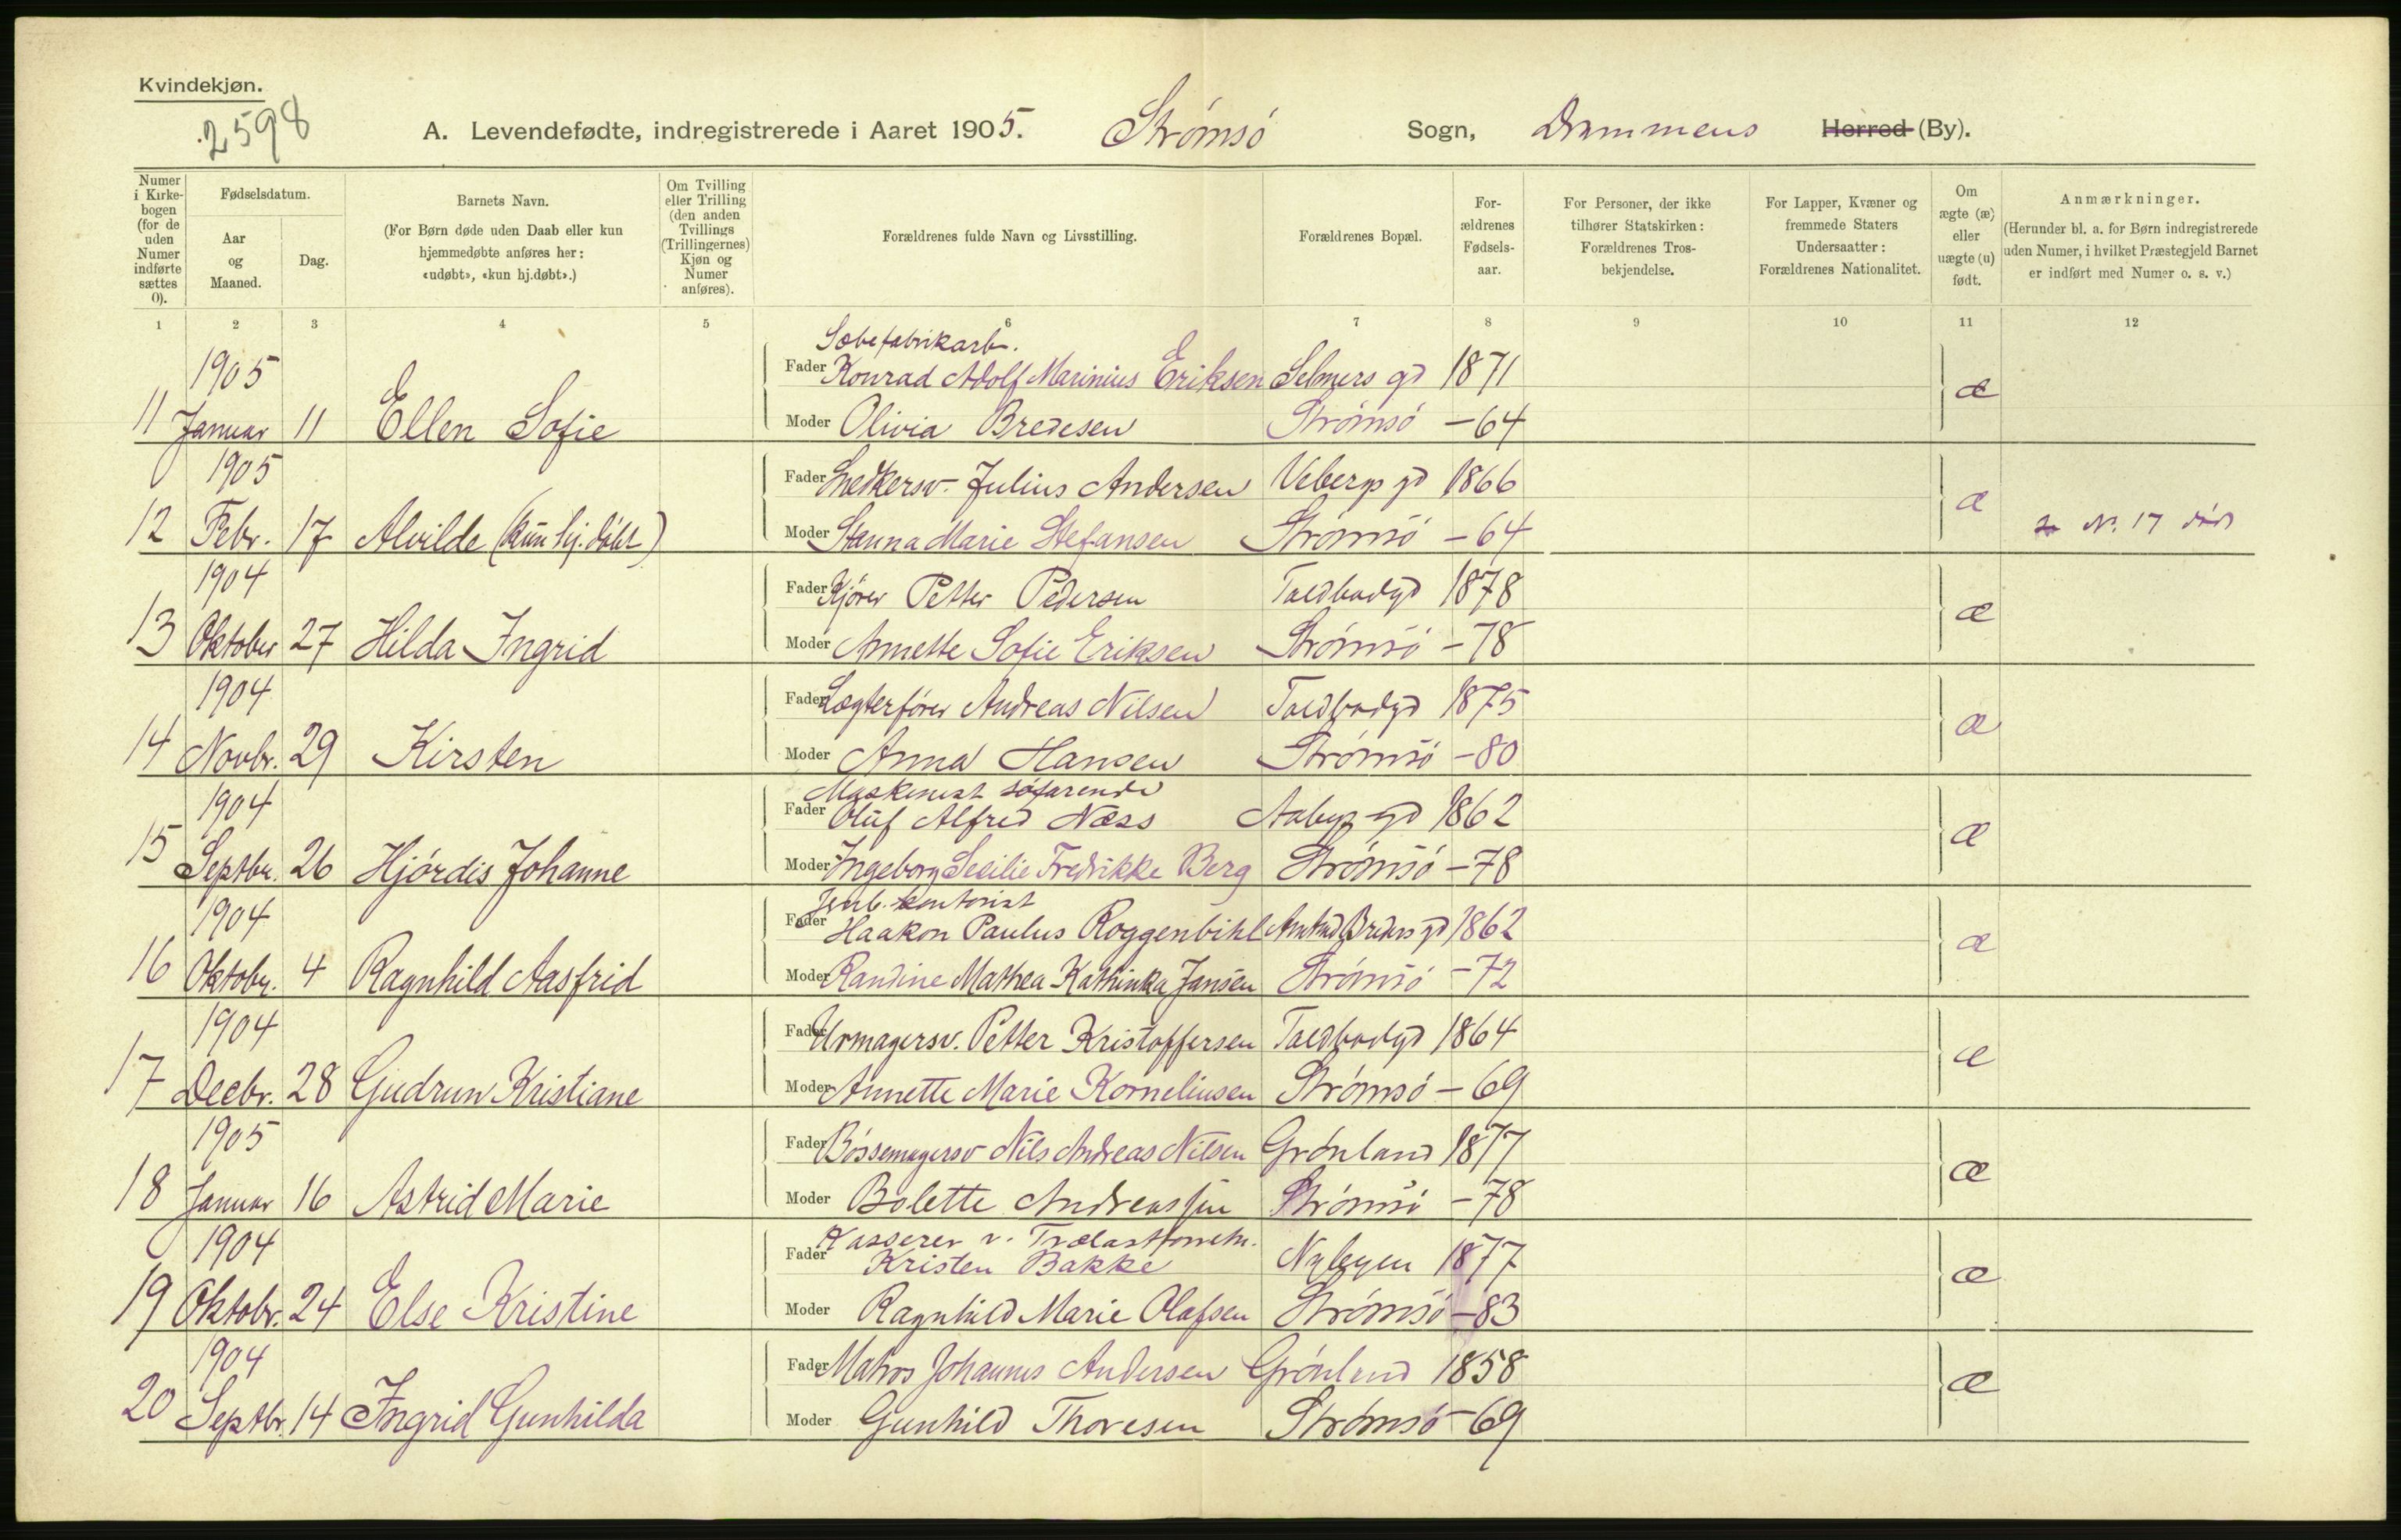 Kvindekjøn.
2598
A. Levendefødte, indregistrerede i Aaret 1905. Strømsø Sogn, Drammens Herred (By).
Numer i Kirkebogen (for de uden Numer indførte sættes 0).
Fødselsdatum.
Aar og Maaned.
Dag.
Barnets Navn.
(For Børn døde uden Daab eller kun hjemmedøbte anføres her: «udøbt», «kun hj.døbt».)
Om Tvilling eller Trilling (den anden Tvillings (Trillingernes) Kjøn og Numer anføres).
Forældrenes fulde Navn og Livsstilling.
Forældrenes Bopæl.
Forældrenes Fødselsaar.
For Personer, der ikke tilhører Statskirken: Forældrenes Trosbekjendelse.
For Lapper, Kvæner og fremmede Staters Undersaatter: Forældrenes Nationalitet.
Om ægte (æ) eller uægte (u) født.
Anmærkninger.
(Herunder bl. a. for Børn indregistrerede uden Numer, i hvilket Præstegjeld Barnet er indført med Numer o. s. v.)
1 2 3 4 5 6 7 8 9 10 11 12
Sæbefabrikarb.
1905 Fader Konrad Adolf Marinius Eriksen Selmers gd 1871 æ
11 Januar 11 Ellen Sofie Moder Olivia Bredesen Strømsø -64
1905 Fader Snedkersv. Julius Andersen Vebergs gd 1866 æ
12 Febr. 17 Alvilde (kun hj. døbt) Moder Stanna Marie Stefansen Strømsø -64 No. 17 død
1904 Fader Kjører Petter Pedersen Toldbodgd 1878 æ
13 Oktober 27 Hilda Ingrid Moder Annette Sofie Eriksen Strømsø -78
1904 Fader Lægterfører Andreas Nilsen Toldbodgd 1875 æ
14 Novbr. 29 Kirsten Moder Anna Hansen Strømsø -80
Maskinist søfarende
1904 Fader Oluf Alfred Næss Aabys gd 1862 æ
15 Septbr. 26 Hjørdis Johanne Moder Ingeborg Secilie Fredrikke Berg Strømsø -78
Jernb. kontorist
1904 Fader Haakon Paulus Roggenbihl gd 1862 æ
16 Oktober. 4 Ragnhild Aasfrid Moder Randine Mathea Kathinka Jansen Strømsø -72
1904 Fader Urmagersv. Petter Kristoffersen Toldbodgd 1864 æ
17 Decbr. 28 Gudrun Kristiane Moder Annette Marie Korneliusen Strømsø -69
1905 Fader Bøssemagersv Nils Andreas Nilsen Grønland 1877 æ
18 Januar 16 Astrid Marie Moder Bolette Andreassen Strømsø -78
Kasserer v. Trælasttomten.
1904 Fader Kristen Bakke Nybyen 1877 æ
19 Oktobr. 24 Else Kristine Moder Ragnhild Marie Olafsen Strømsø -83
1904 Fader Matros Johannes Andersen Grønland 1858 æ
20 Septbr. 14 Ingrid Gunhilda Moder Gunhild Thoresen Strømsø -69